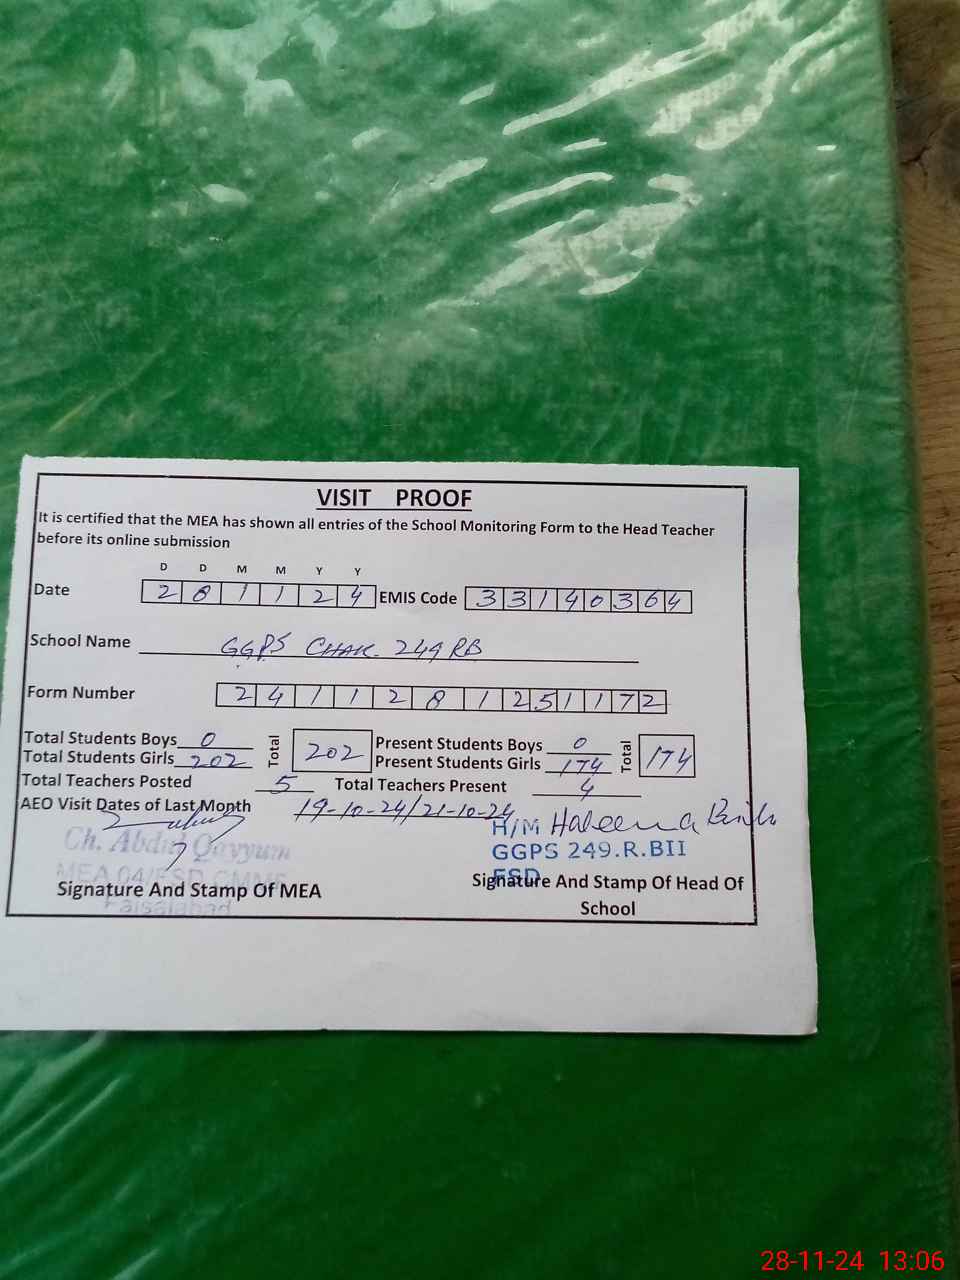 VISIT PROOF
It is certified that the MEA has shown all entries of the School Monitoring Form to the Head Teacher
before its online submission
D D M M Y Y
Date 2 8 1 1 2 4 EMIS Code 3 3 1 4 0 3 6 4
School Name GGPS CHAK. 249 RB
Form Number 2 4 1 1 2 8 1 2 5 1 1 7 2
Total Students Boys 0 Total 202 Present Students Boys 0 Total 174
Total Students Girls 202 Present Students Girls 174
Total Teachers Posted 5 Total Teachers Present 4
AEO Visit Dates of Last Month 19-10-24/21-10-24
Ch. Abdul Qayyum H/M Haleema
MEA 04/FSD CMMF GGPS 249.R.BII
Faisalabad FSD
Signature And Stamp Of MEA Signature And Stamp Of Head Of
School
28-11-24 13:06